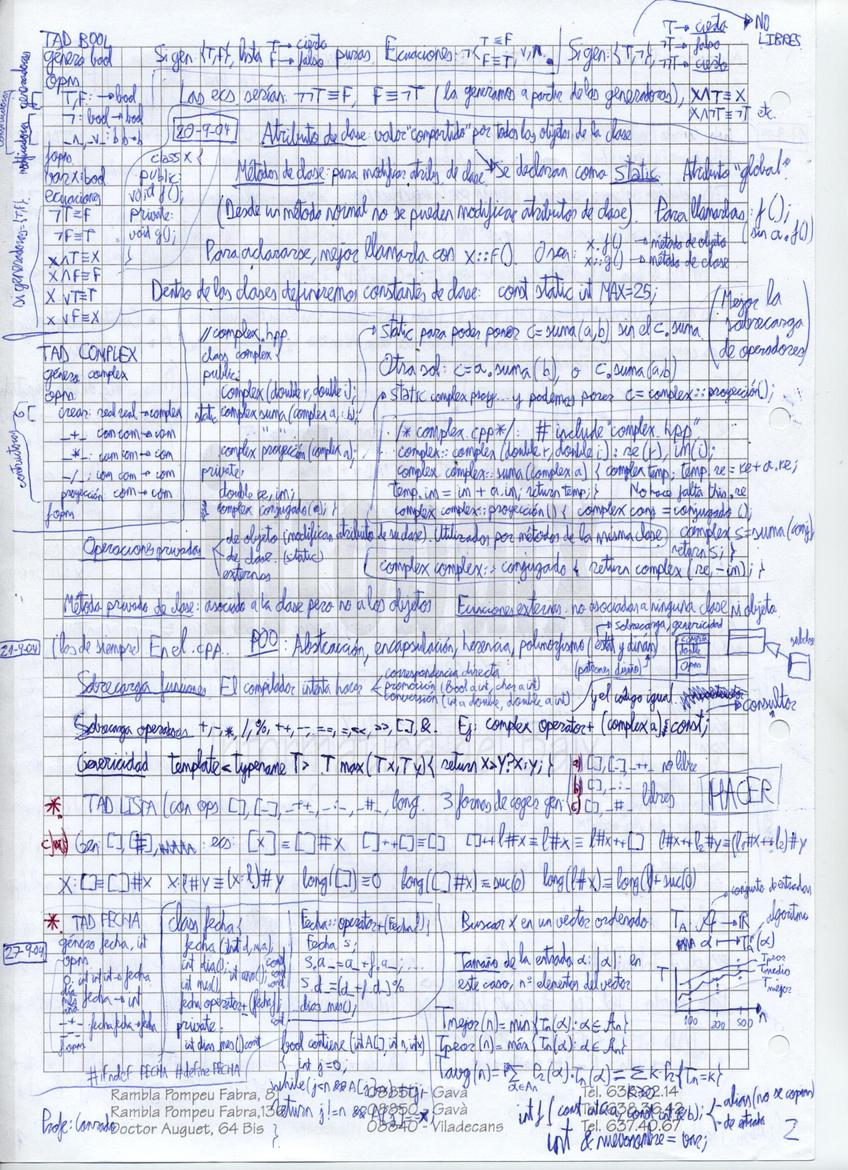 TAD BOOL
género bool
opns
T, F: → bool
¬: bool → bool
_∧_, _∨_: b b → b
fopns
var x: bool
ecuaciones
¬T≡F
¬F≡T
x∧T≡X
x∧F≡F
X∨T≡T
x∨F≡X
modificadoras generadoras
Si gen {T,F}, lista T→cierto F→falso puras. Ecuaciones: ¬{T≡F F≡T, ∨, ∧.
Si gen: {T,¬} T→cierto ¬T→falso ¬¬T→cierto NO LIBRES
Las ecs serían: ¬¬T≡F, F≡¬T (la generamos a partir de los generadores), X∧T≡X
X∧¬T≡¬T etc.
20-9-04
Atributo de clase: valor "compartido" por todos los objetos de la clase
class X {
public:
void f();
private:
void g();
}
Métodos de clase: para modificar atribs. de clase. Se declaran como static. Atributo "global".
(Desde un método normal no se pueden modificar atributos de clase). Para llamarlas: f();
(sin a.f())
Para aclararse, mejor llamarla con x::f(). O sea: x.f() → método de objeto
x::g() → método de clase
Dentro de las clases definiremos constantes de clase: const static int MAX=25;
TAD COMPLEX
género complex
opns
crear: real real → complex
_+_ com com → com
_*_: com com → com
_/_: com com → com
proyección com → com
fopns
constructoras
//complex.hpp
class complex {
public:
complex(double r, double i);
static complex suma(complex a, b);
complex proyección(complex a);
private:
double re, im;
complex conjugado(a); }
static para poder poner c=suma(a,b) sin el c.suma
(Mejor la sobrecarga de operadores)
Otra sol: c=a.suma(b), o c.suma(a,b)
static complex proy... y podemos poner c=complex::proyección();
/* complex.cpp*/ #include "complex.hpp"
complex::complex(double r, double i): re(r), im(i);
complex complex::suma(complex a) { complex temp; temp.re=re+a.re;
temp.im = im + a.im; return temp; } No hace falta this.re
complex complex::proyección() { complex conj = conjugado();
complex s=suma(conj)
return s; }
complex complex::conjugado { return complex (re,-im); }
Operaciones privadas
de objeto (modifican atributo de su clase). Utilizados por métodos de la misma clase
de clase (static)
externas
Método privado de clase: asociado a la clase pero no a los objetos Funciones externas: no asociadas a ninguna clase ni objeto
21-9-04
(los de siempre) En el .cpp. POO: Abstracción, encapsulación, herencia, polimorfismo (estát y dinám)
sobrecarga, genericidad
(patrones diseño)
Sobrecarga funciones El compilador intenta hacer
correspondencia directa
promoción (bool a int, char a int)
conversión (int a double, double a int)
y el código igual.
consultor
Sobrecarga operadores +, -, *, /, %, ++, --, ==, =, <<, >>, [], &. Ej: complex operator+ (complex a) const;
Genericidad template<typename T> T max(T x, T y) { return x>y?x:y; }
a) [], [_], _++_ no libre
b) [], _:_
c) [], _#_ libres
HACER
* TAD LISTA (con ops [], [_], _++_, _:_, _#_, long. 3 formas de coger gen:
c) Gen [], #, ecs: [x] ≡ []#X []++[]≡[] []++l#x≡l#x≡l#x++[] l₁#x++l₂#y≡(l₁#x++l₂)#y
X:[]≡[]#x x:l#y≡(x:l)#y long([])≡0 long([]#x)≡suc(0) long(l#x)≡long(l)+suc(0)
* TAD FECHA
27-9-04
género fecha, int
opns
int int int → fecha
fecha → int
_+_: fecha fecha → fecha
fopns
class fecha {
fecha (int d, m, a);
int dia();
int mes(); int anno();
fecha operator+ (fecha f);
private:
int dias_mes() const
#ifndef FECHA #define FECHA
Fecha::operator+(Fecha f) {
Fecha s;
s.a_=a_+f.a_; ...
s.d_=(d_+f.d_)%
dias_mes();
bool contiene (int A[], int n, int x)
{ int j=0;
while(j<n && A[j]
return j!=n && A[j]==x
}
Buscar X en un vector ordenado
Tamaño de la entrada α: |α|: en
este caso, nº elementos del vector
conjunto de entradas
T_A: A → R algoritmo
α → T_A(α)
T
Tpeor
Tmedio
Tmejor
100 200 500 n
Tmejor(n)=min{T_n(α): α∈A_n}
Tpeor(n)=máx{T_n(α): α∈A_n}
Tavg(n)=∑ Pr(α)·T_n(α)=∑ k·Pr{T_n=k}
α∈An
int f (const int& a, const int& b); alias (no se copian)
de entrada
int & nuevonombre = one;
2
Profe: Conrado
Rambla Pompeu Fabra, 8 08850 - Gavà
Rambla Pompeu Fabra, 08850 - Gavà
Doctor Auguet, 64 Bis 08840 - Viladecans Tel. 637.40.67